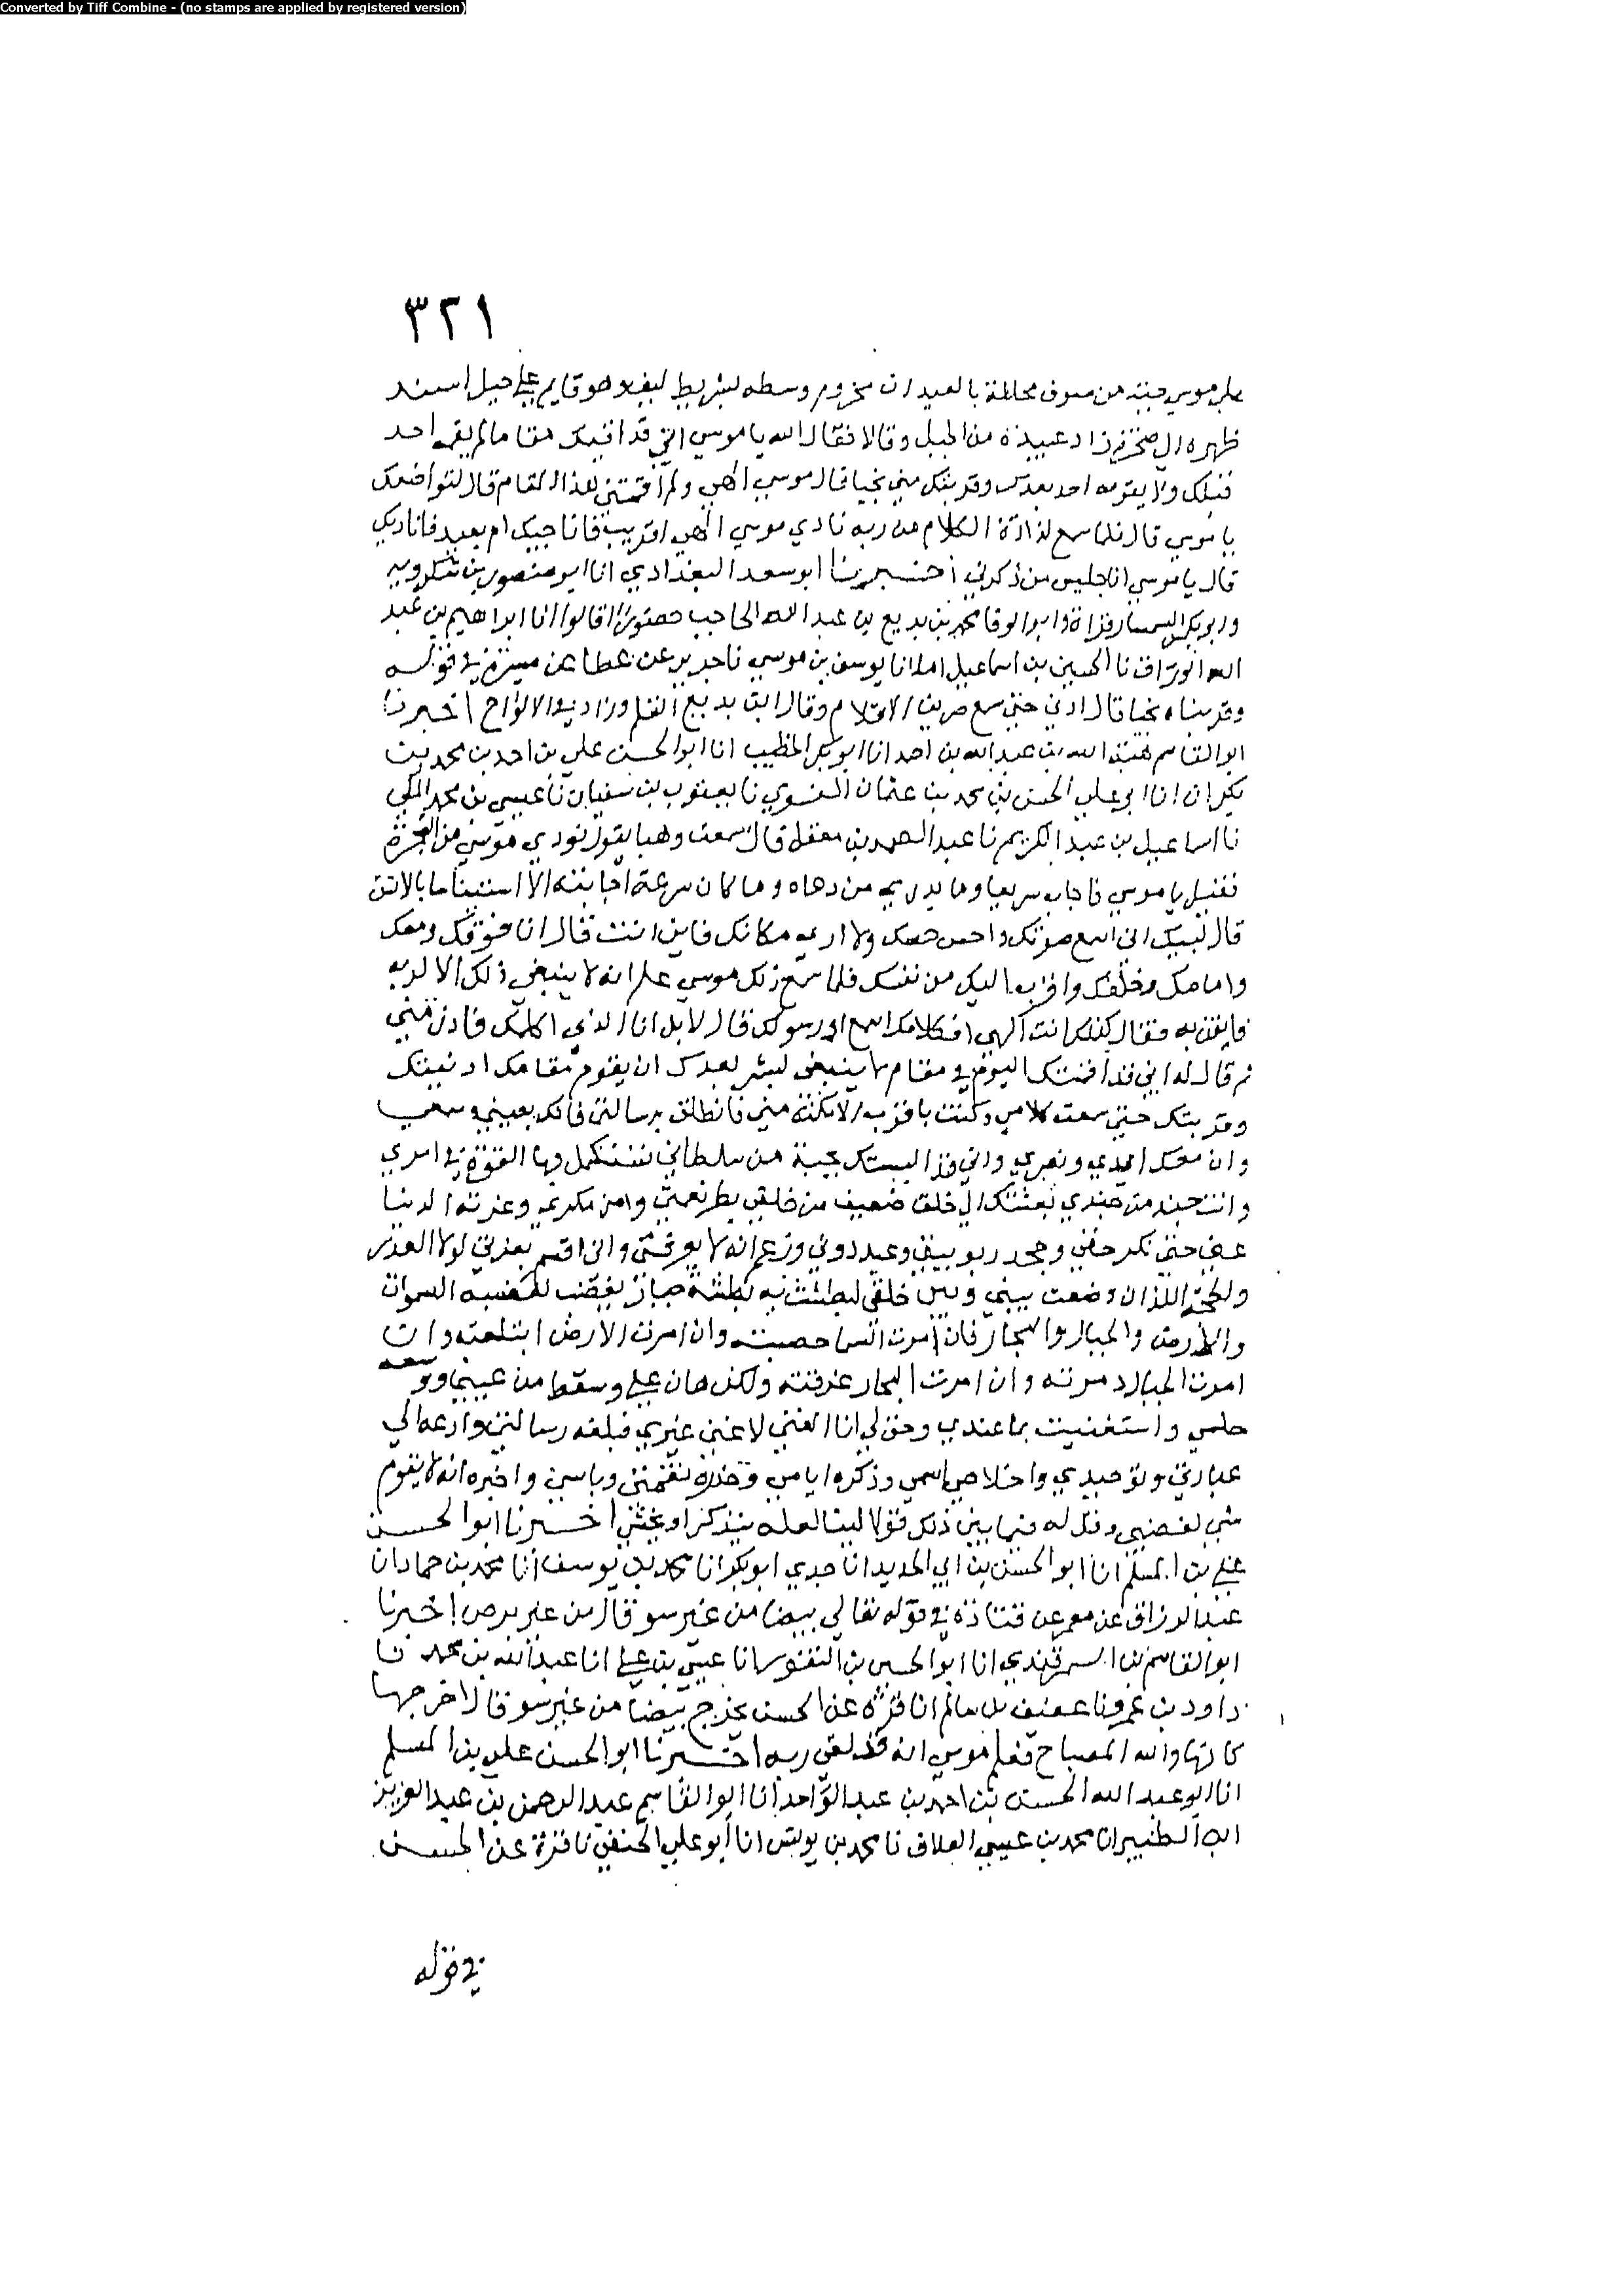 Converted by Tiff Combine - (no stamps are applied by registered version)
٣٢١
على موسى جبة من صوف مخللة بالعيدان مخزوم وسطه بشريط ليف وهو قايم على جبل اسند
ظهره الى صخرة زاد عبيدة من الجبل وقالا فقال الله يا موسى اني قد اقمتك مقاما لم يقمه احد
قبلك ولا يقومه احد بعدك وقربتك مني نجيا قال موسى الهي ولم اقمتني هذا المقام قال لتواضعك
يا موسى قال فلما سمع لذاذة الكلام من ربه نادى موسى الهي اقريب فاناجيك ام بعيد فاناديك
قال يا موسى انا جليس من ذكرني اخبرنا ابو سعد البغدادي انا ابو منصور بن شكرويه
وابو بكر السمسار وابو الوفا محمد بن بديع بن عبد الله الحاجب قالوا انا ابراهيم بن عبد
الله نا الحسين بن اسماعيل املا نا يوسف بن موسى نا جرير عن عطا عن ميسرة في قوله
وقربناه نجيا قال ادني حتى سمع صريف الاقلام وقال ابن بديع القلم وزاد في الالواح اخبرنا
ابو القاسم هبة الله بن عبد الله بن احمد انا ابو بكر الخطيب انا ابو الحسن علي بن احمد بن محمد بن
بكران انا ابو علي الحسن بن محمد بن عثمان الفسوي نا يعقوب بن سفيان نا عيسى بن محمد
نا اسماعيل بن عبد الكريم نا عبد الصمد بن معقل قال سمعت وهبا يقول نودي موسى من الشجرة
فقيل يا موسى فاجاب سريعا وما يدري من دعاه وما كان سرعة اجابته الا استيناسا بالانس
قال لبيك اني اسمع صوتك واحس حسك ولا ارى مكانك فاين انت قال انا فوقك ومعك
وامامك وخلفك واقرب اليك من نفسك فلما سمع ذلك موسى علم انه لا ينبغي ذلك الا لربه
فايقن به فقال كذلك انت الهي افكلامك اسمع ام رسولك قال لا بل انا الذي اكلمك فادن مني
ثم قال له اني قد اقمتك اليوم في مقام لا ينبغي لبشر بعدك ان يقوم مقامك ادنيتك
وقربتك حتى سمعت كلامي وكنت باقرب الامكنة مني فانطلق برسالتي فانك بعيني وسمعي
وان معك ايدي ونصري واني قد البستك جبة من سلطاني تستكمل بها القوة في امري
وانت جند من جندي بعثتك الى خلق ضعيف من خلقي بطر نعمتي وامن مكري وغرته الدنيا
عني حتى نكر حقي وجحد ربوبيتي وعبد دوني وزعم انه لا يعرفني واني اقسم بعزتي لولا العذر
والحجة اللذان وضعت بيني وبين خلقي لبطشت به بطشة جبار يغضب لغضبه السموات
والارض والجبال والبحار فان امرت السما حصبته وان امرت الارض ابتلعته وان
امرت الجبال دمرته وان امرت البحار غرقته ولكن هان علي وسقط من عيني ووسعه
حلمي واستغنيت بما عندي وحق لي انا الغني لا غني غيري فبلغه رسالتي وادعه الي
عبادتي وتوحيدي واخلاص اسمي وذكره ايامي وحذره نقمتي وباسي واخبره انه لا يقوم
شي لغضبي وقل له فيما بين ذلك قولا لينا لعله يتذكر او يخشى اخبرنا ابو الحسن
علي بن المسلم انا ابو الحسن بن ابي الحديد انا جدي ابو بكر انا محمد بن يوسف انا محمد بن حماد انا
عبد الرزاق عن معمر عن قتادة في قوله تعالى بيضا من غير سو قال من غير برص اخبرنا
ابو القاسم بن السمرقندي انا ابو الحسين بن النقور انا عيسى بن علي انا عبد الله بن محمد نا
داود بن عمرو نا عفيف بن سالم انا قرة عن الحسن تخرج بيضا من غير سو قال اخرجها
كانها والله المصباح فعلم موسى انه قد لقي ربه اخبرنا ابو الحسن علي بن المسلم
انا ابو عبد الله الحسن بن احمد بن عبد الواحد انا ابو القاسم عبد الرحمن بن عبد العزيز
ابن الطبيز انا محمد بن عيسى العلاف نا محمد بن يونس انا ابو علي الحنفي نا قرة عن الحسن
في قوله